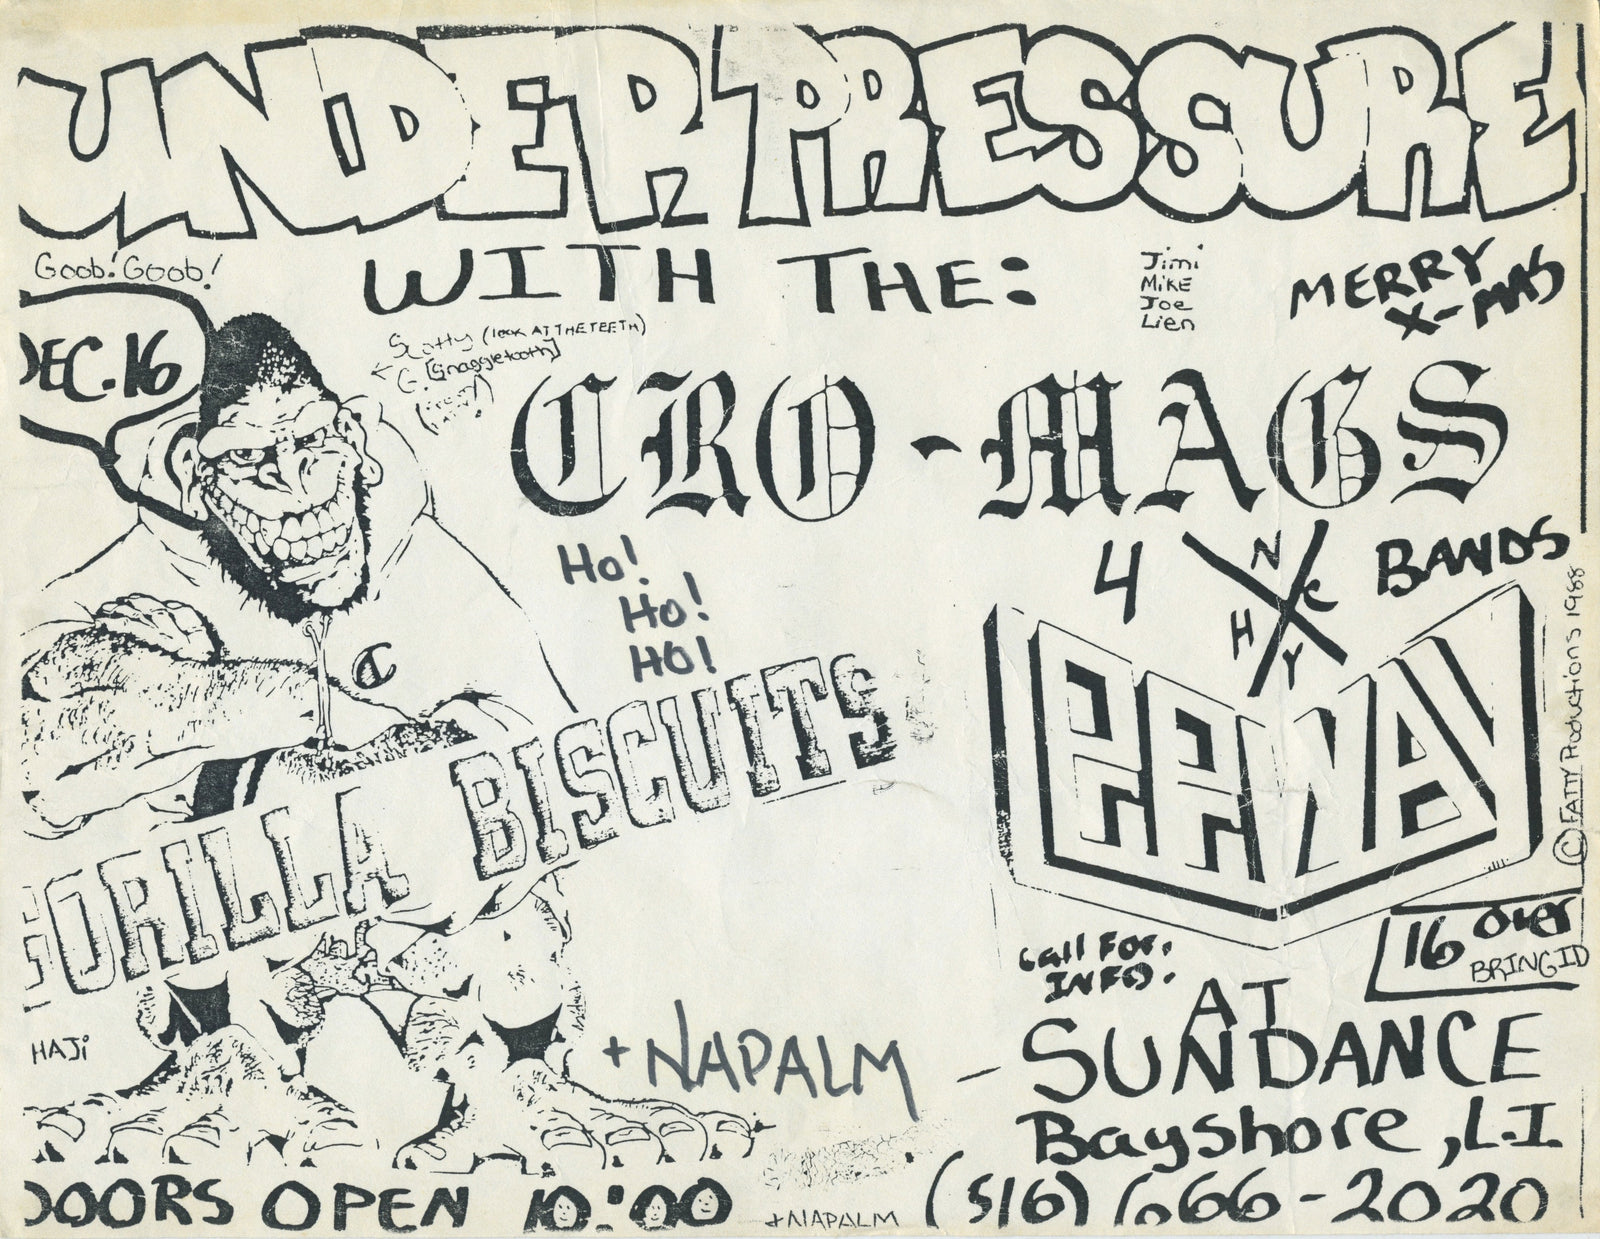 UNDER PRESSURE
WITH THE:
Goob! Goob!
DEC. 16
Scotty (look AT THE TEETH)
[Snaggletooth]
Jimi
Mike
Joe
Lien
MERRY
X-MAS
CRO-MAGS
Ho!
Ho!
HO!
4 BANDS
N
Y
H
C
GORILLA BISCUITS
© FATTY Productions 1988
16 over
BRING ID
Call For.
INFO.
AT
SUNDANCE
Bayshore, L.I.
(516) 666-2020
HAJi
+ NAPALM -
DOORS OPEN 10:00
+NAPALM